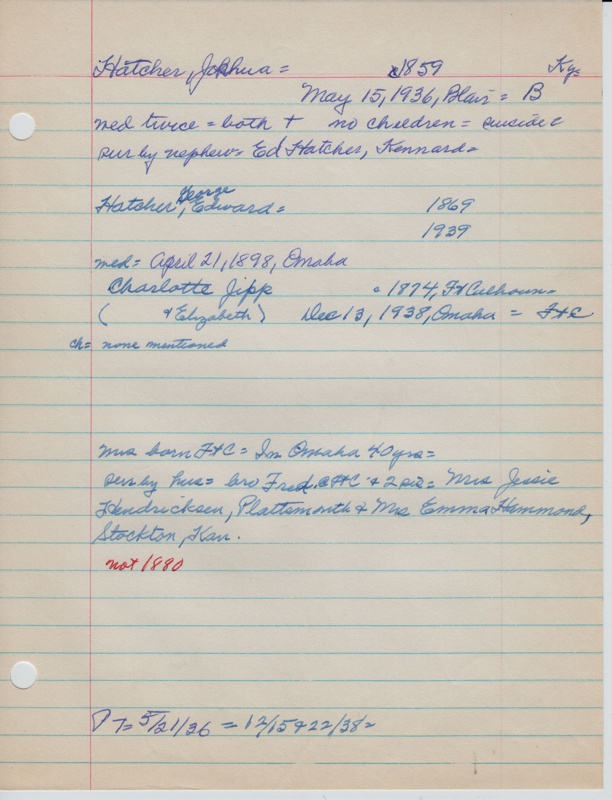 Hatcher, Joshua = c1859 Ky=
May 15, 1936, Blair = B
med twice = both + no children = suicide
sur by nephew = Ed Hatcher, Kennard =
George
Hatcher, Edward = 1869
1939
med = April 21, 1898, Omaha
Charlotte Jipp 1874, Ft Calhoun =
( & Elizabeth) Dec 13, 1938, Omaha = FtC
ch = none mentioned
Mrs born FtC = In Omaha 40 yrs =
sur by hus = bro Fred. @ FtC & 2 sis = Mrs Jessie
Hendricksen, Plattsmouth & Mrs Emma Hammond,
Stockton, Kan.
not 1880
PT= 5/21/36 = 12/15 & 22/38 =